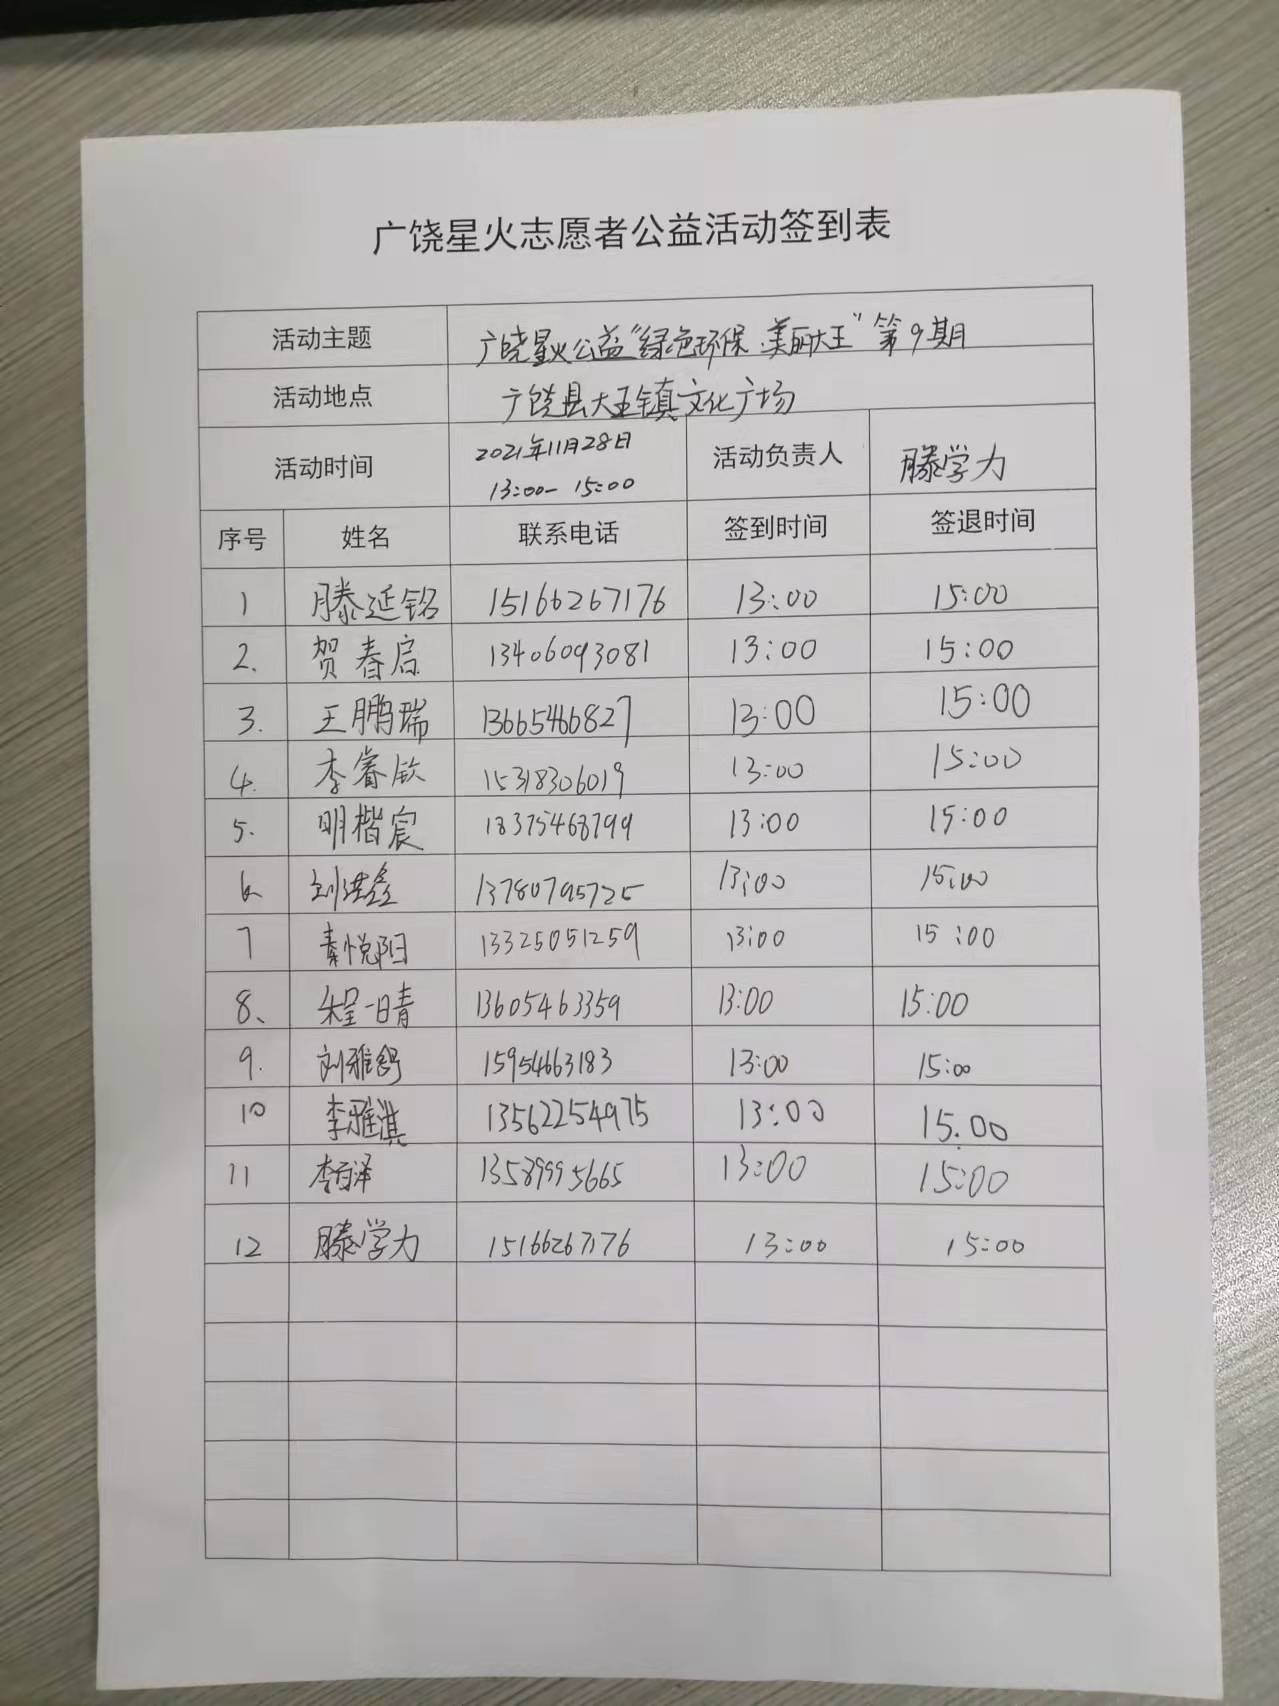 广饶星火志愿者公益活动签到表
活动主题 广饶星火公益“绿色环保·美丽大王”第9期
活动地点 广饶县大王镇文化广场
活动时间 2021年11月28日 13:00-15:00 活动负责人 滕学力
序号 姓名 联系电话 签到时间 签退时间
1 滕延铭 15166267176 13:00 15:00
2. 贺春启 13406093081 13:00 15:00
3. 王鹏瑞 13665466827 13:00 15:00
4. 李睿钦 15318306019 13:00 15:00
5. 明楷宸 18375468799 13:00 15:00
6、 刘洪鑫 13780795725 13:00 15:00
7 秦悦阳 13325051259 13:00 15:00
8、 程一晴 13605463359 13:00 15:00
9. 刘雅舒 15954663183 13:00 15:00
10 李雅淇 13562254975 13:00 15.00
11 李百泽 13589995665 13:00 15:00
12 滕学力 15166267176 13:00 15:00